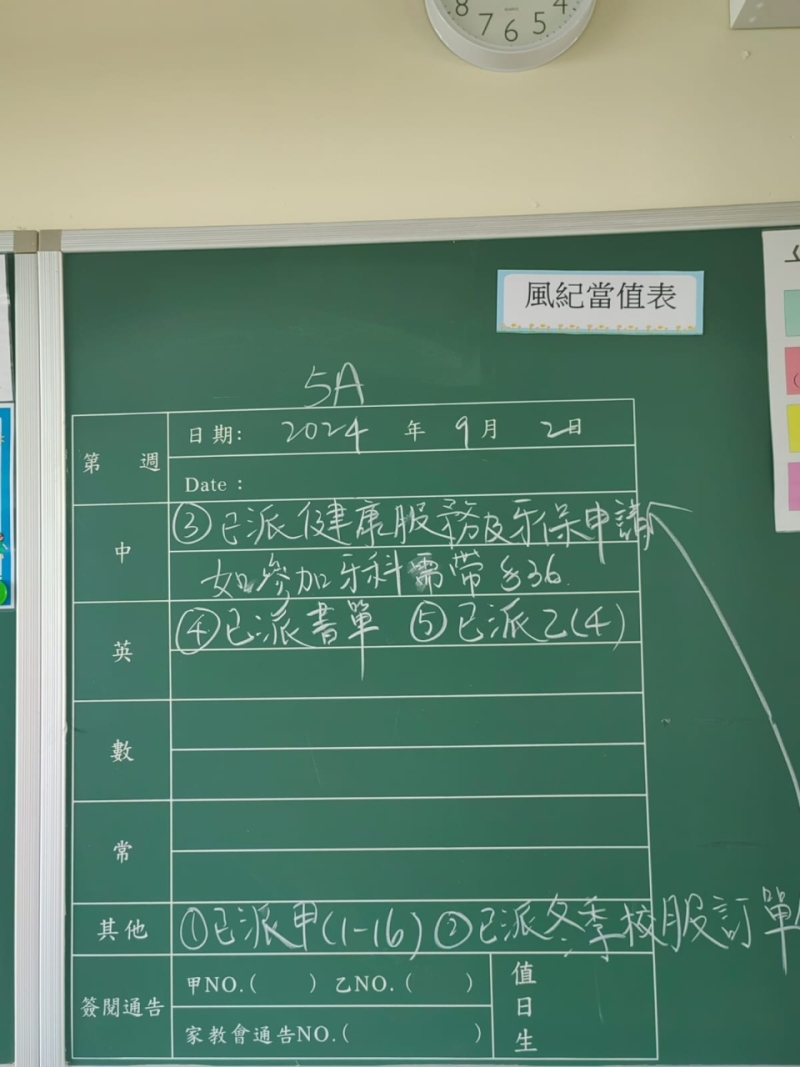 8 7 6 5 4
風紀當值表
5A
第 週 日期: 2024 年 9月 2日
Date :
中 ③已派健康服務及牙保申請
如參加牙科需帶$36.
英 ④已派書單 ⑤已派乙(4)
數
常
其他 ①已派甲(1-16) ②已派冬季校服訂單
簽閱通告 甲NO.( ) 乙NO.( ) 值日生
家教會通告NO.( )